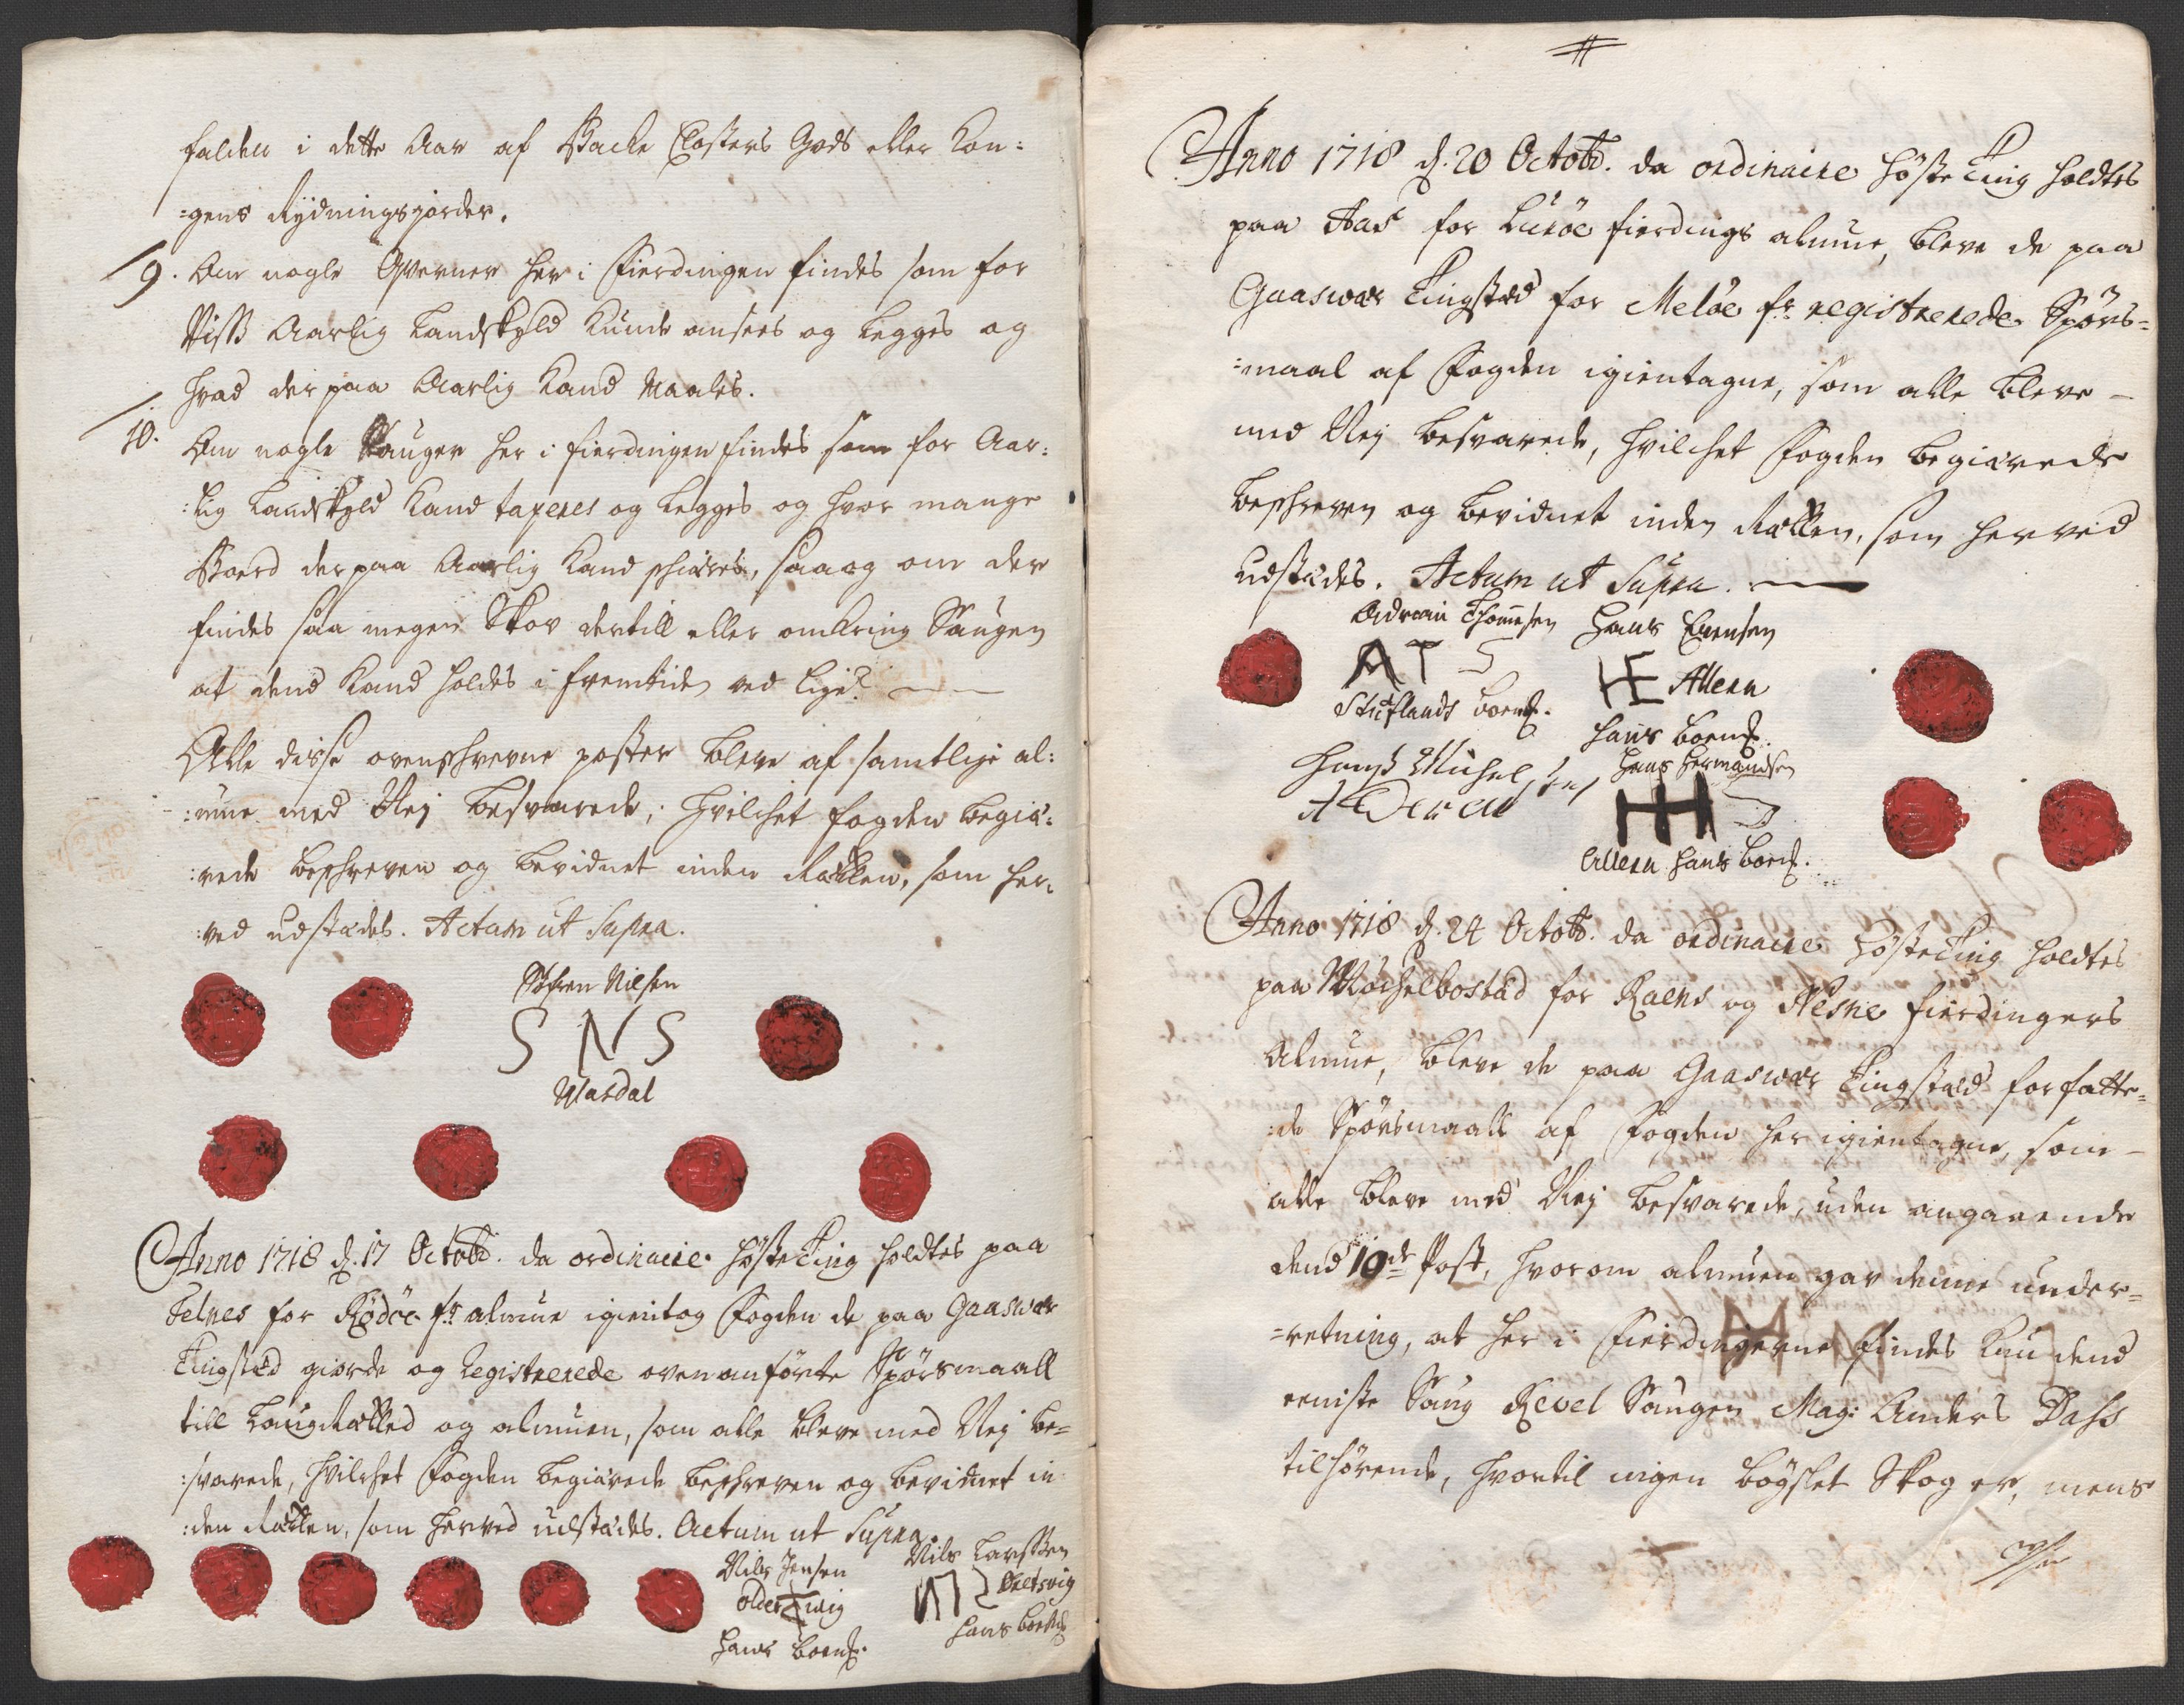 falden i dette Aar af Backe Closters Gods eller Kon:
:gens Rydningsjorder.
9. Om nogle Qverner her i Fierdingen findes som for
Viss Aarlig Landskyld kunde ansees og legges og
hvad der paa Aarlig kand Maales.
10. Om nogle Sauger her i fierdingen findes som for Aar:
:lig Landskyld kand taxeres og legges og hvor mange
Boerd der paa Aarlig kand schiæres, saa og om der
findes saa megen Skov dertill eller omkring Saugen
at dend kand holdes i fremtiden ved lige?
Alle disse ovenschrevne poster bleve af samtlige al:
:mue med Nej besvarede; hvilchet fogden begiæ:
:rede beschreven og bevidnet inden Rætten, som her:
:ved udstædes. Actum ut Supra.
Søfren Nilsen
S N S
Wasdal
Anno 1718 d. 17 Octobr. da ordinaire HøsteTing holdtes paa
Selnes for Rødöe fr. almue igientog Fogden de paa Gaaswær
Tingsted giorde og Registrerede ovenanførte Spörsmaall
till LaugRætted og almuen, som alle bleve med Nej be=
:svarede, hvilchet Fogden begiærede beschreven og bevidnet in
:den Rætten, som herved udstædes. Actum ut Supra.
Nils Jensen
Olderwig
hans boemk.
Nils Larssen
hans boemk
#
Anno 1718 d. 20 Octobr. da ordinaire HösteTing holdtes
paa Aas for Luröe fierdings almue, bleve de paa
Gaaswær Tingsted for Melöe fr. registrerede Spörs=
:maal af Fogden igientagne, som alle bleve
med Nej besvarede, hvilchet Fogden begiærede
beschreven og bevidnet inden Rætten, som herved
udstædes. Actum ut Supra.
Adrian Thomesen
A T S
Stuflands boemk.
Hans Evensen
HE Alleren
hans boemk.
Hans Michelsen
Hans Hermandsen
HH
hans boemk.
Anno 1718 d. 24 Octobr. da ordinaire HösteTing holdtes
paa Michelbostad for Raens og Nesne fierdingers
Almue, bleve de paa Gaaswær Tingsted forfatte=
:de Spörsmaall af Fogden her igientagne, som
alle bleve med Nej besvarede, uden angaaende
dend 10de Post, hvorom almuen gav denne under=
=retning, at her i Fierdingerne findes kun dend
eeniste Saug Revel Saugen Mag: Anders Dass
tilhørende, hvortil ingen böyslet Skog er, mens